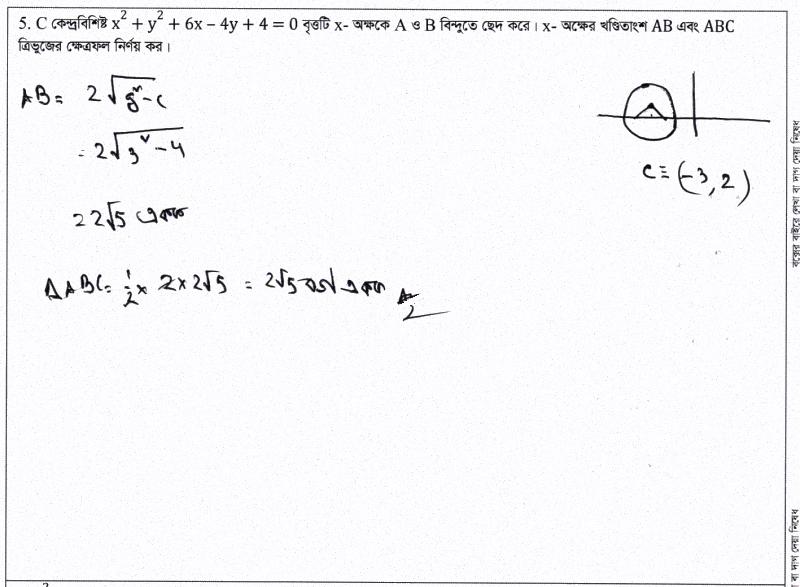 5. C কেন্দ্রবিশিষ্ট x² + y² + 6x – 4y + 4 = 0 বৃত্তটি x- অক্ষকে A ও B বিন্দুতে ছেদ করে। x- অক্ষের খণ্ডিতাংশ AB এবং ABC
ত্রিভুজের ক্ষেত্রফল নির্ণয় কর।
AB = 2√g²-c
= 2√3² - 4
= 2√5 একক
C ≡ (-3, 2)
ΔABC = 1/2 × 2 × 2√5 = 2√5 বর্গ একক
বক্সের বাইরে লেখা বা দাগ দেয়া নিষেধ
বা দাগ দেয়া নিষেধ